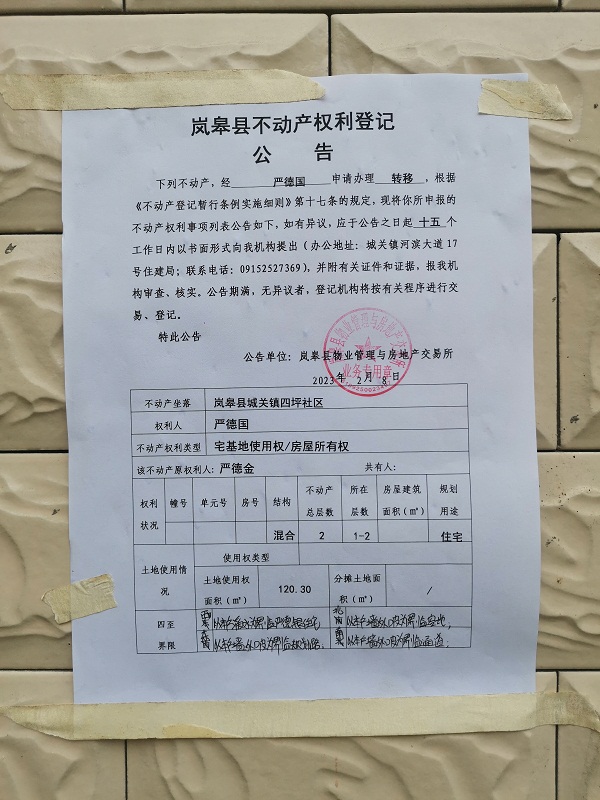 岚皋县不动产权利登记
公 告
下列不动产，经 严德国 申请办理 转移 ，根据
《不动产登记暂行条例实施细则》第十七条的规定，现将你所申报的
不动产权利事项列表公告如下，如有异议，应于公告之日起 十五 个
工作日内以书面形式向我机构提出（办公地址：城关镇河滨大道17
号住建局；联系电话：09152527369），并附有关证件和证据，报我机
构审查、核实。公告期满，无异议者，登记机构将按有关程序进行交
易、登记。
特此公告
公告单位：岚皋县物业管理与房地产交易所
2023年 2月 8日
业务专用章
不动产坐落 岚皋县城关镇四坪社区
权利人 严德国
不动产权利类型 宅基地使用权/房屋所有权
该不动产原权利人：严德金 共有人：
权利状况 幢号 单元号 房号 结构 不动产总层数 所在层数 房屋建筑面积（㎡） 规划用途
混合 2 1-2 住宅
土地使用情况 使用权类型
土地使用权面积（㎡） 120.30 分摊土地面积（㎡） /
四至界限